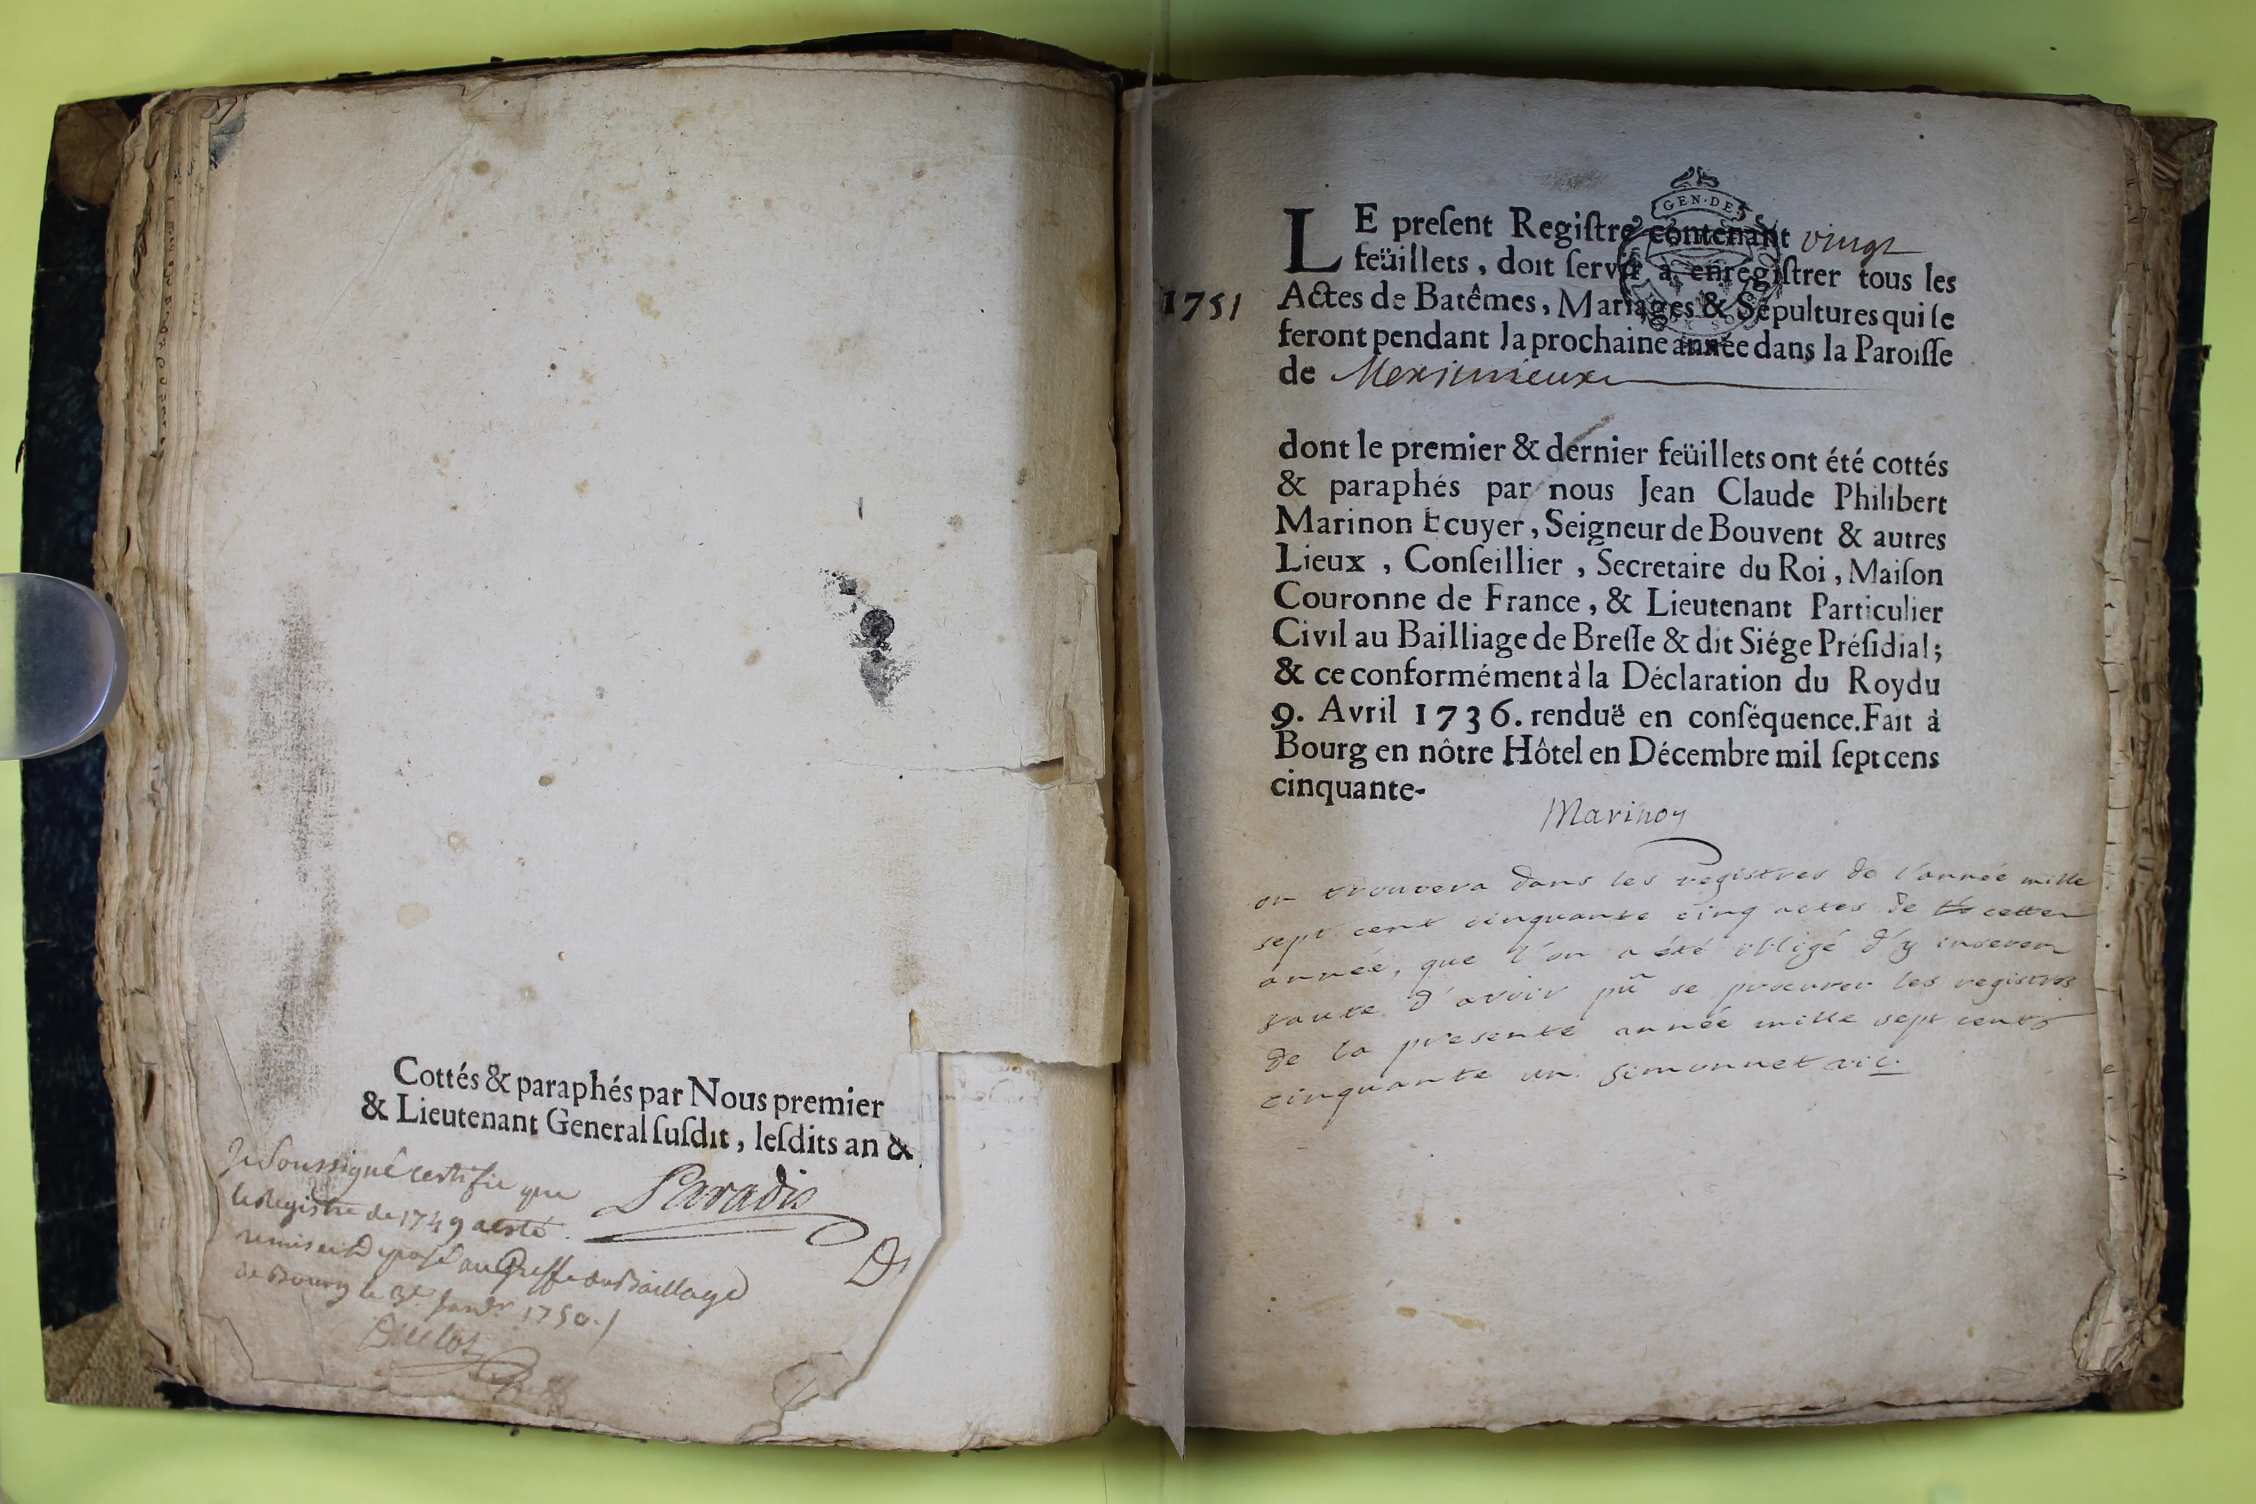 Cottés & paraphés par Nous premier
& Lieutenant General ſuſdit, leſdits an &
Je Soussigné certifie que
le Registre de 1749 a esté
remis et deposé au Greffe du Baillage
de Bourg le 3e. Janvr 1750./
Paradis
Duclos
GEN·DE
LE preſent Regiſtre contenant vingt
feüillets, doit ſervir à enregiſtrer tous les
1751
Actes de Batêmes, Mariages & Sépultures qui ſe
feront pendant la prochaine année dans la Paroiſſe
de Meximieux
dont le premier & dernier feüillets ont été cottés
& paraphés par nous Jean Claude Philibert
Marinon Ecuyer, Seigneur de Bouvent & autres
Lieux, Conſeillier, Secretaire du Roi, Maiſon
Couronne de France, & Lieutenant Particulier
Civil au Bailliage de Breſſe & dit Siége Préſidial;
& ce conformément à la Déclaration du Roy du
9. Avril 1736. renduë en conſéquence. Fait à
Bourg en nôtre Hôtel en Décembre mil ſept cens
cinquante-
Marinon
on trouvera dans les registres de l'année mille
sept cent cinquante cinq actes de cette
année, que l'on a été obligé d'y inserer
faute d'avoir pû se procurer les registres
de la presente année mille sept cents
cinquante un. Simonnet vic.